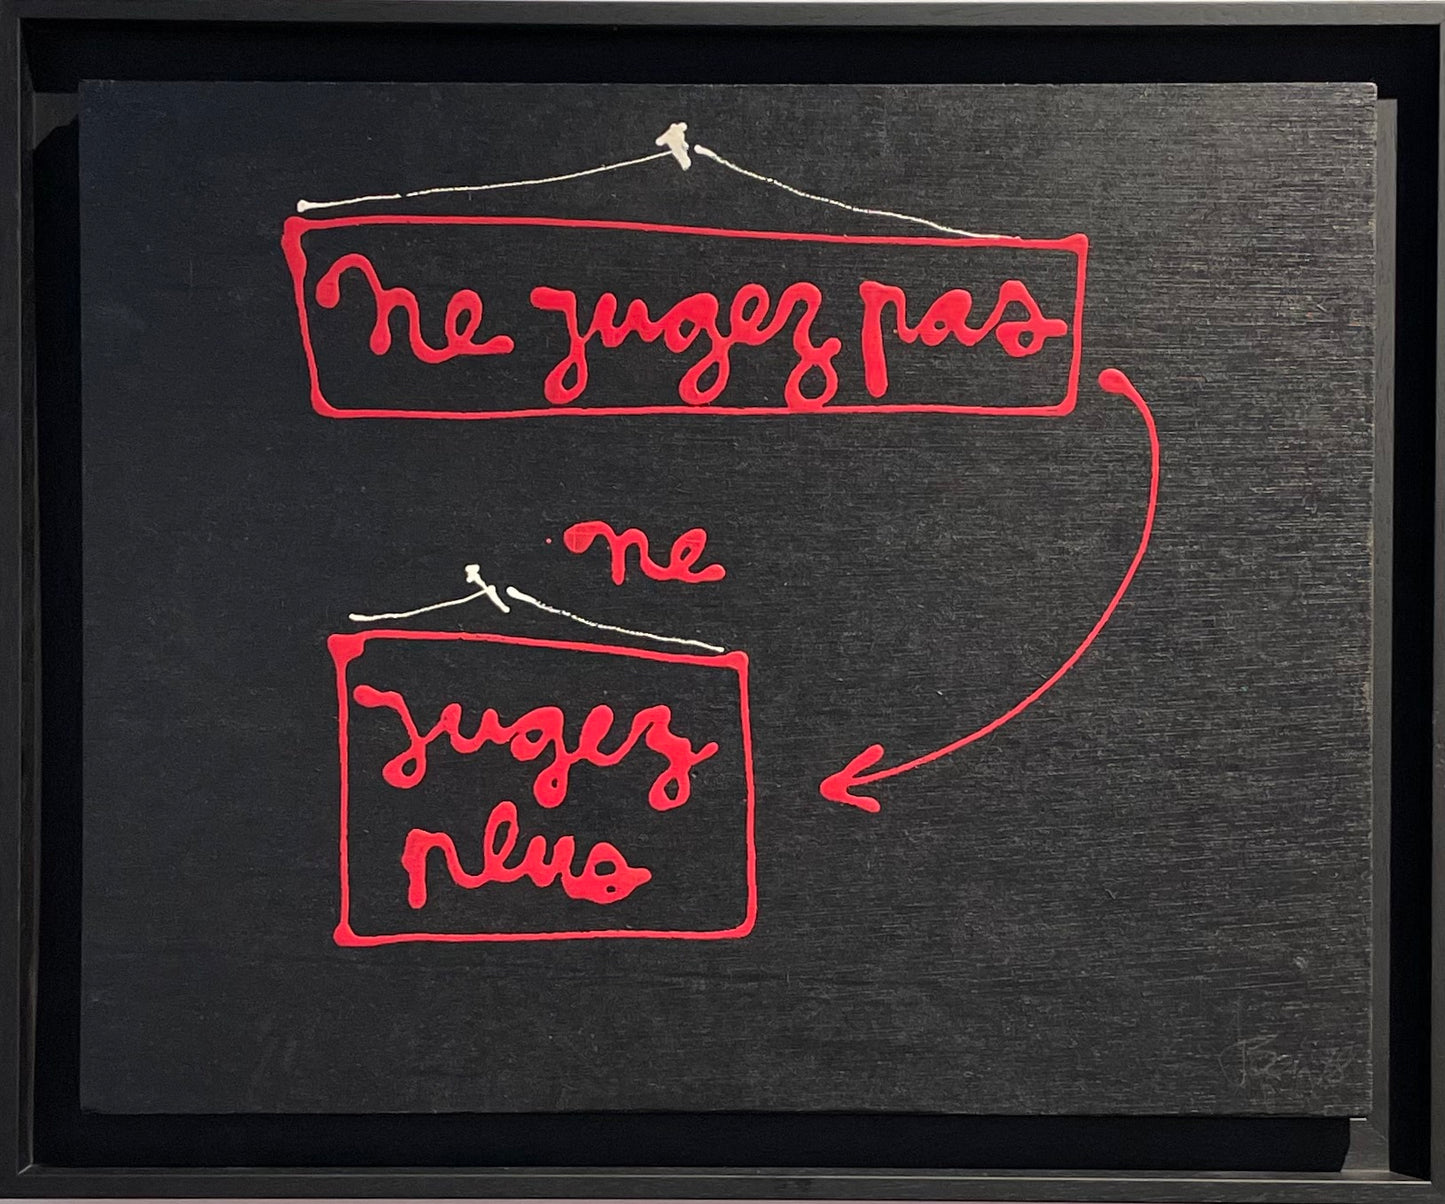 ne jugez pas
ne
jugez
plus